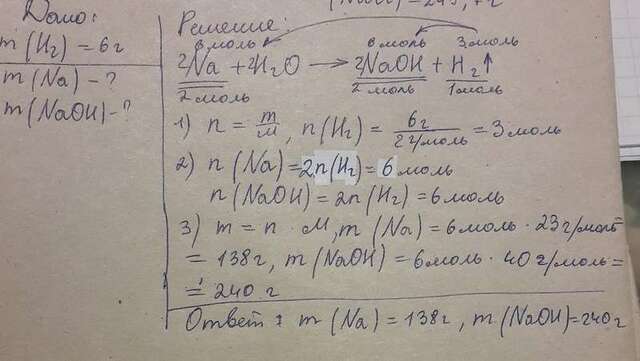 Дано:
m(H₂) = 6г
m(Na) - ?
m(NaOH) - ?
Решение:
6 моль 6 моль 3 моль
2Na + 2H₂O → 2NaOH + H₂↑
2 моль 2 моль 1 моль
1) n = m/M, n(H₂) = 6г/2г/моль = 3 моль
2) n(Na) = 2n(H₂) = 6 моль
n(NaOH) = 2n(H₂) = 6 моль
3) m = n · M, m(Na) = 6 моль · 23 г/моль =
= 138г, m(NaOH) = 6 моль · 40 г/моль =
= 240 г
Ответ: m(Na) = 138г, m(NaOH) = 240г